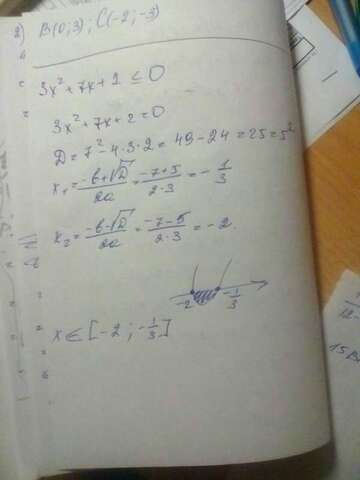 2) B(0;3); C(-2;-3)
3x²+7x+2 ≤ 0
3x²+7x+2=0
D=7²-4·3·2=49-24=25=5²
x₁=(-b+√D)/2a=(-7+5)/(2·3)=-1/3
x₂=(-b-√D)/2a=(-7-5)/(2·3)=-2
-2 -1/3
x∈[-2;-1/3]